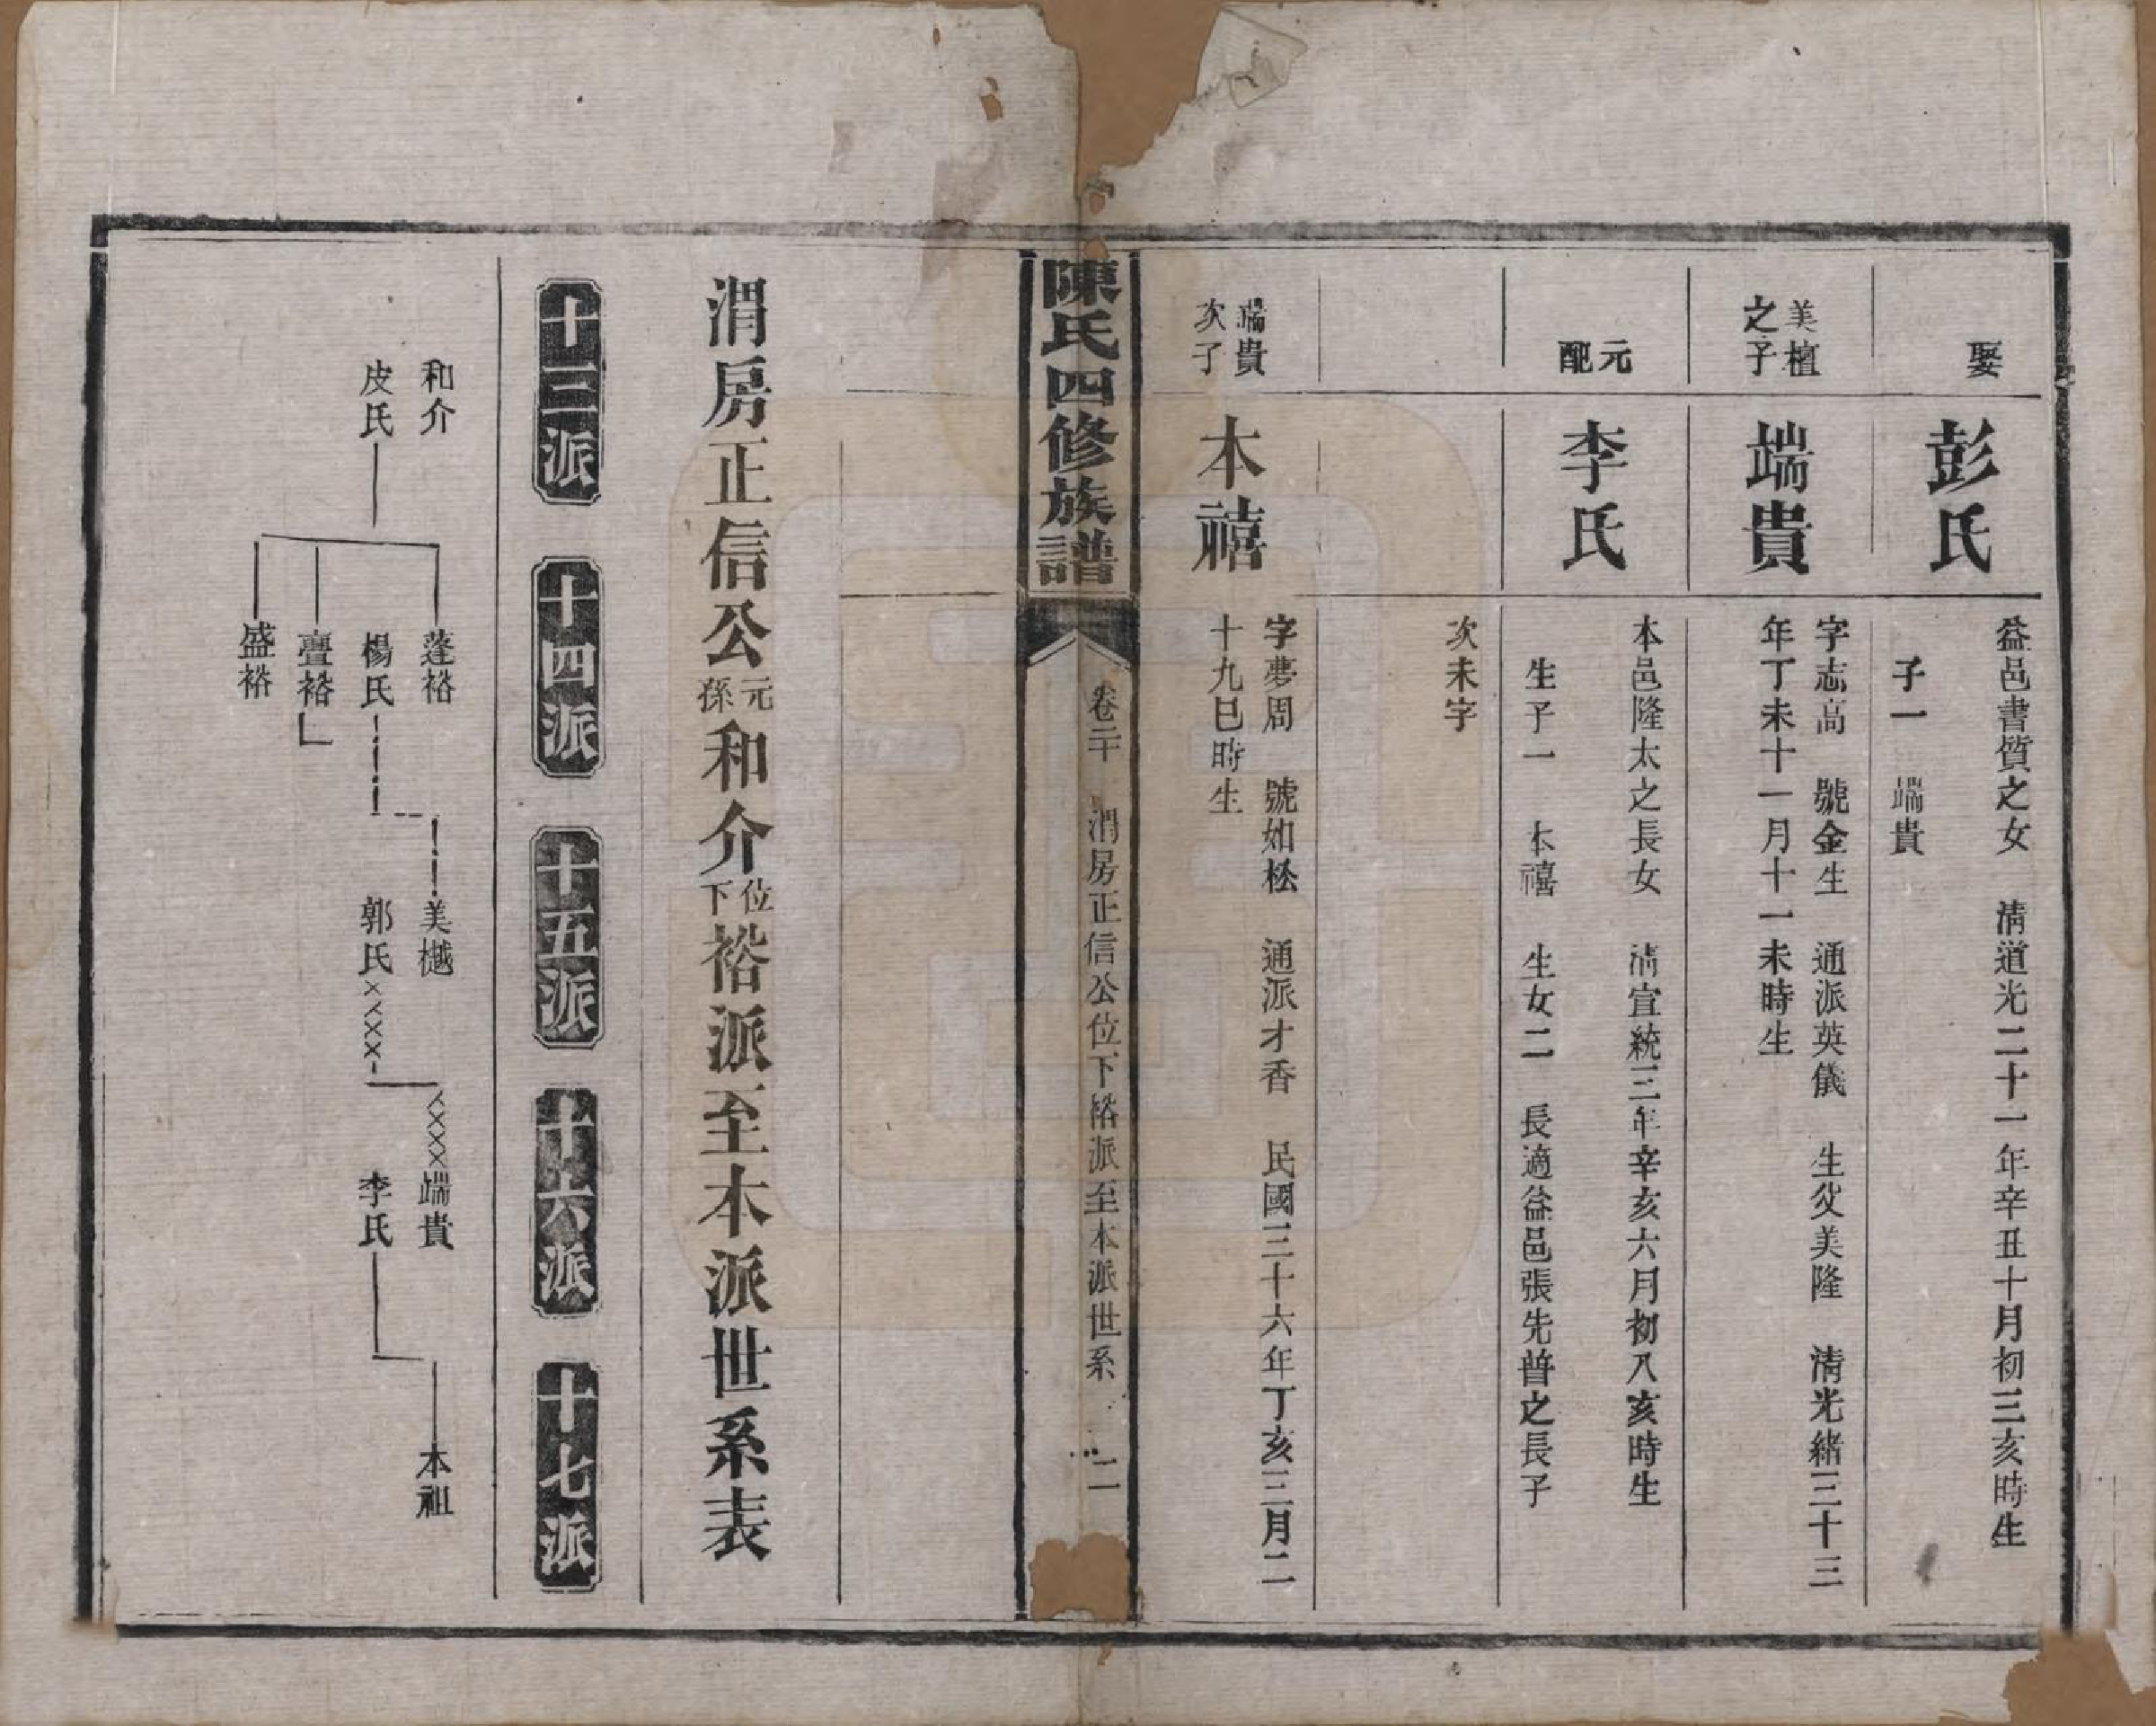 娶
彭氏
益邑書質之女　清道光二十一年辛丑十月初三亥時生
子一　端貴
美植之子
端貴
字志高　號金生　通派英儀　生父美隆　清光緒三十三
年丁未十一月十一未時生
元配
李氏
本邑隆太之長女　清宣統三年辛亥六月初八亥時生
生子一　本禧　生女二　長適益邑張先普之長子
次未字
端貴次子
本禧
字夢周　號如松　通派才香　民國三十六年丁亥三月二
十九巳時生
陳氏四修族譜
卷二十　渭房正信公位下裕派至本派世系　二
渭房正信公元孫和介位下裕派至本派世系表
十三派　十四派　十五派　十六派　十七派
和介　蓬裕　美樾　端貴　本祖
皮氏　楊氏　郭氏　李氏
亹裕
盛裕